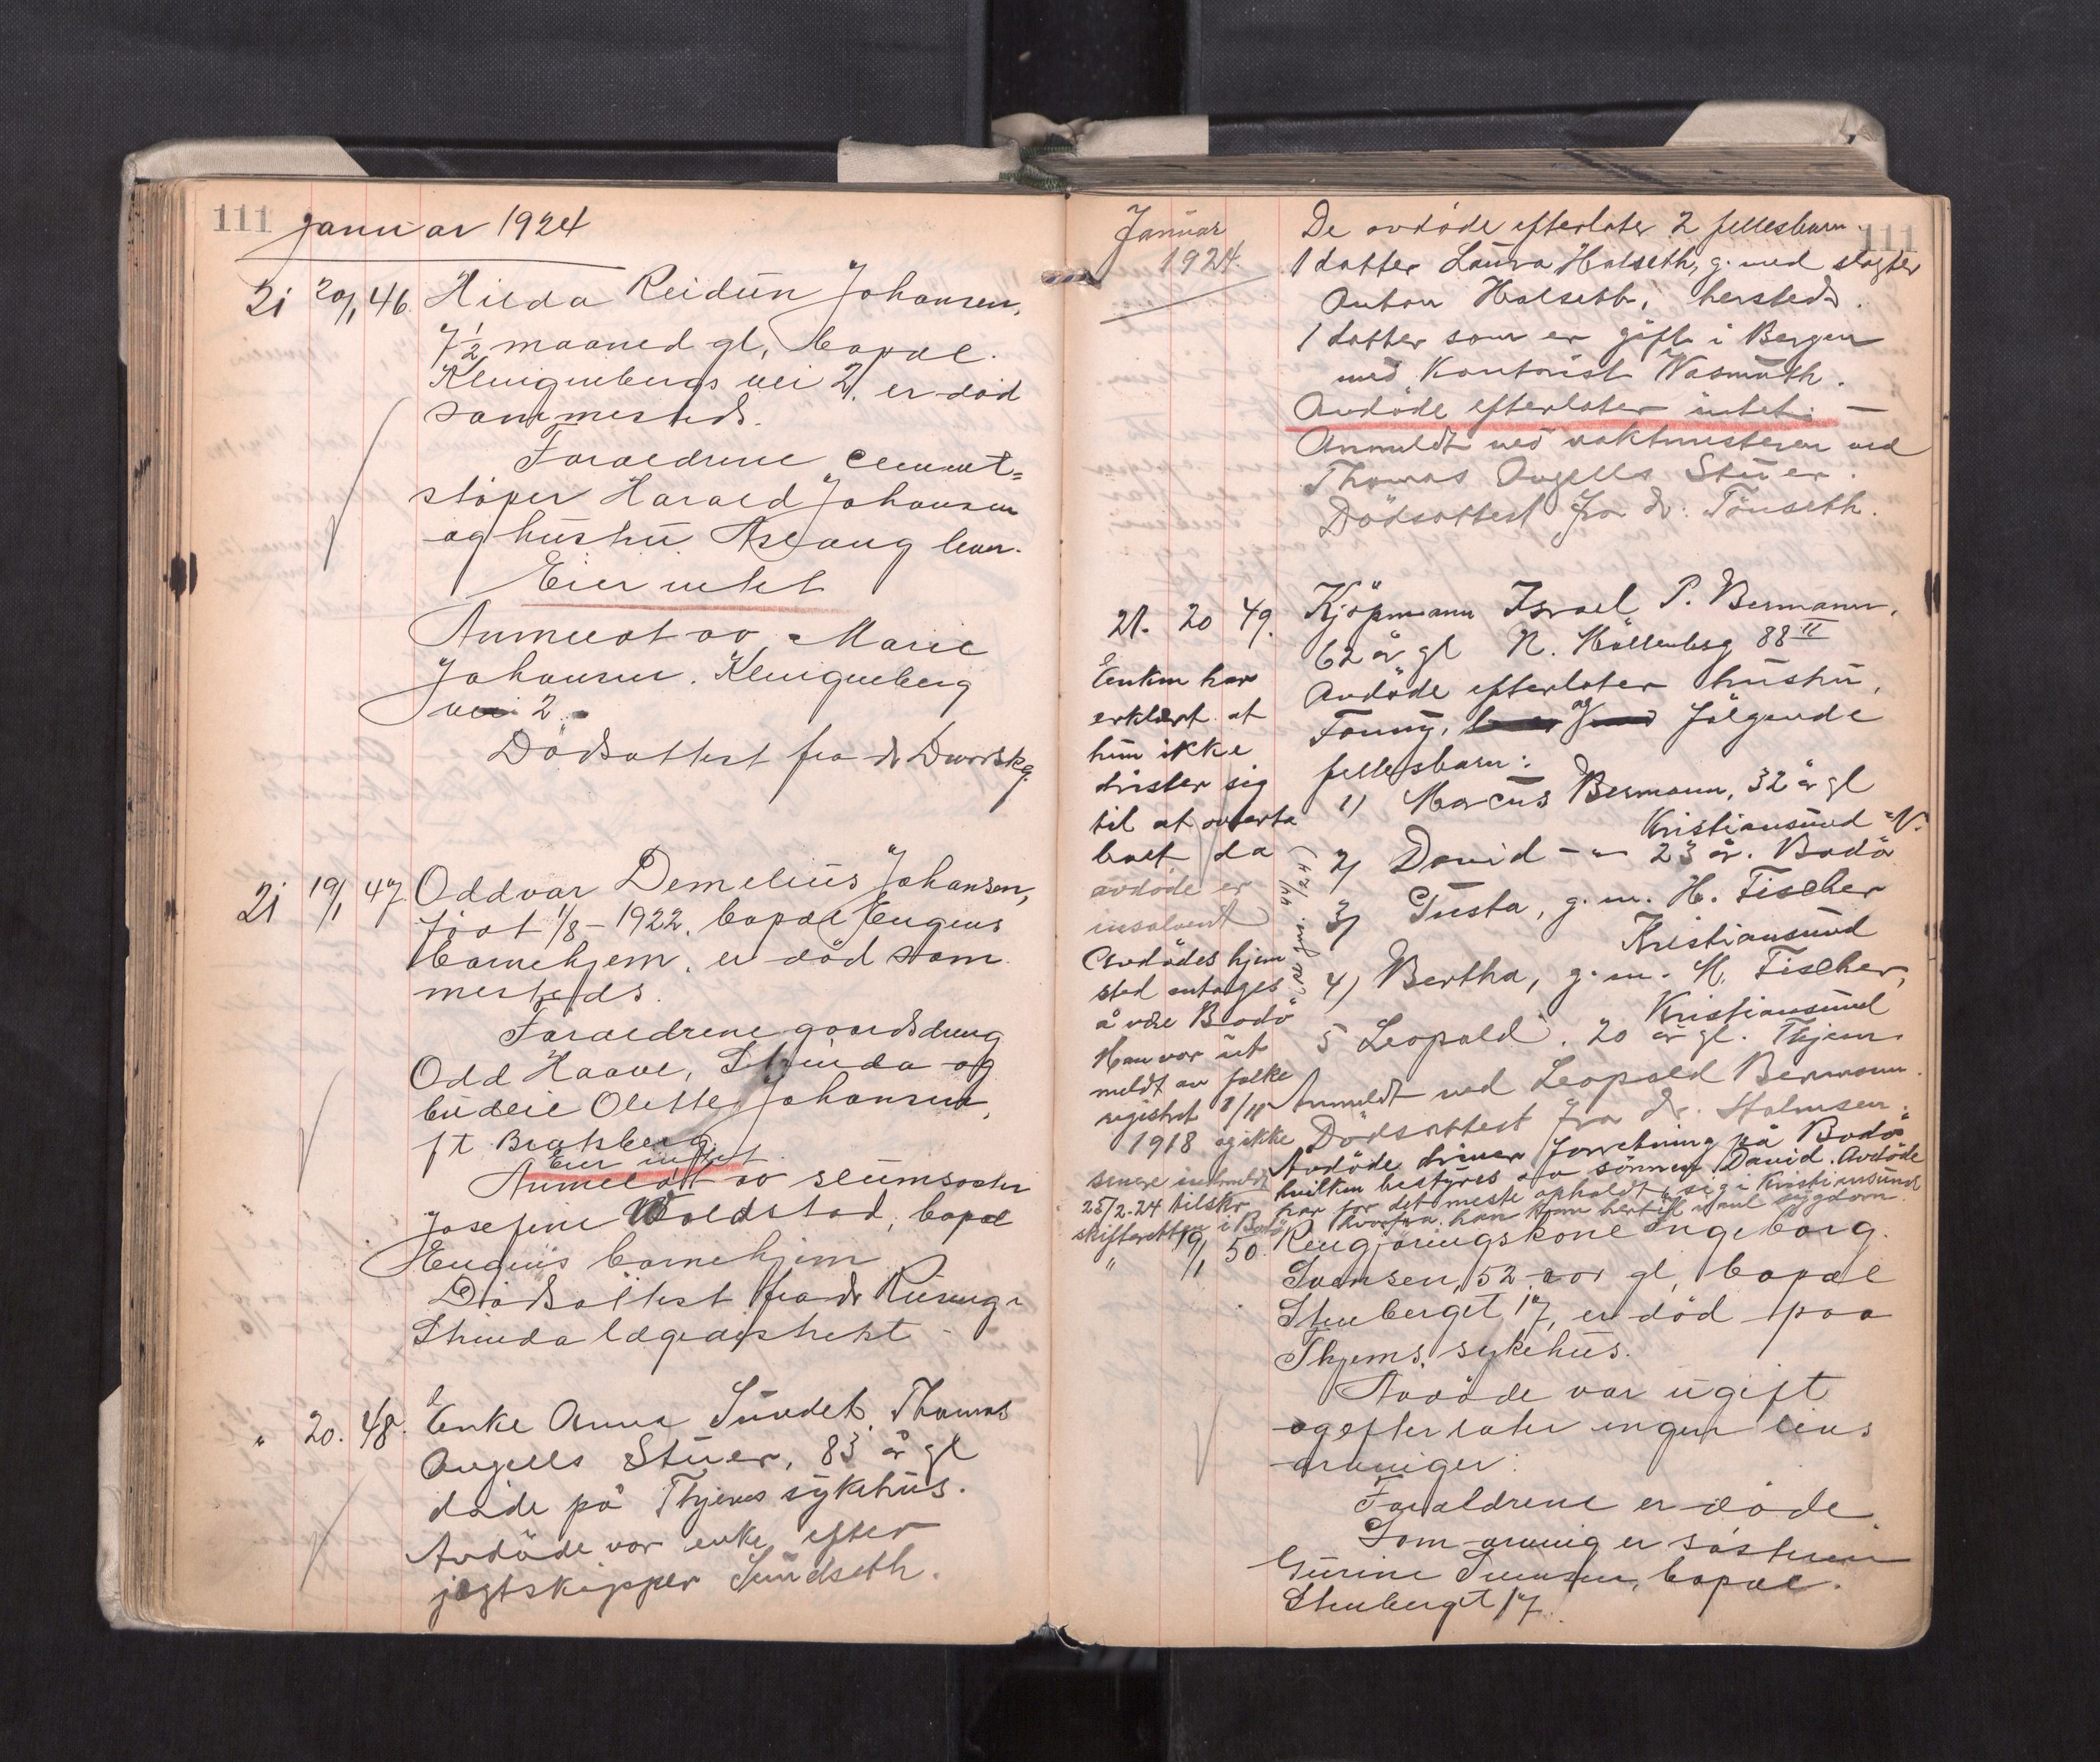 111 Januar 1924
21 20/1 46. Hilda Reidun Johansen,
7 1/2 maaned gl, bopæl
Klingenbergs vei 2, er död
sammesteds.
Foraeldrene cement=
stöper Harald Johansen
og hustru Aslaug lever.
Eier intet
Anmeldt av Marie
Johansen. Klingenberg
vei 2.
Dödsattest fra dr
21 19/1 47 Oddvar Demelius Johansen,
födt 1/8 - 1922. bopæl Eugenis
barnehjem. er död sam
mesteds.
Foraeldrene gaardsdreng
Odd Haave, Strinda og
budeie Olette Johansen,
ft Brahberg.
Eier intet.
Anmeldt av slumsöster
Josefine Voldstad, bopæl
Eugenis barnehjem
Dödsattest fra dr
Strinda lægedistrikt -
" 20. 48. Enke Anna Sundet, Thomas
Angells Stuer, 83 år gl
döde på Thjems sykehus.
Avdöde var enke efter
jegtskipper Sundseth.
Januar
1924.
111
De avdöde efterlater 2 fellesbarn.
1 datter Laura Halseth, g. med slagter
Anton Halseth, hersteds.
1 datter som er gift i Bergen
med Kontorist Wasmuth.
Avdöde efterlater intet. —
Anmeldt ved vaktmesteren ved
Thomas Angells Stuer.
Dödsattest fra dr. Tönseth.
21. 20 49. Kjöpmann Israel P. Bermann,
62 år gl N. Möllenberg 88 II
Avdöde efterlater hustru,
Fanny, og følgende
fellesbarn:
1) Marcus Bermann, 32 år gl
Kristiansund N.
2) David -"- 23 år. Bodö
3) Gusta, g. m. H. Fischer
Kristiansund
4) Bertha, g. m. M. Fischer,
Kristiansund
5 Leopold. 20 år gl. Thjem.
Anmeldt ved Leopold Bermann.
Dödsattest fra dr. Holmsen.
Avdöde driver forretning på Bodö
hvilken bestyres av sönnen David. Avdöde
har for det meste opholdt sig i Kristiansund
hvorfra han kom hertil med sygdom.
Enken har
erklært at
hun ikke
drister sig
til at overta
boet da
avdöde er
insolvent
Avdödes hjem
sted antages
å være Bodö
Han var ut
meldt av folke
registret 8/11
1918 og ikke
senere indmeldt
25/2-24 tilskr.
skifteretten i Bodö
" 19/1 50. Rengjøringskone Ingeborg
Svensen, 52 aar gl, bopæl
Stenberget 17, er död paa
Thjems. sykehus.
Avdöde var ugift
og efterlater ingen livs
arvinger.
Foraeldrene er döde.
Som arving er sösteren
Gurine Svensen, bopæl.
Stenberget 17.